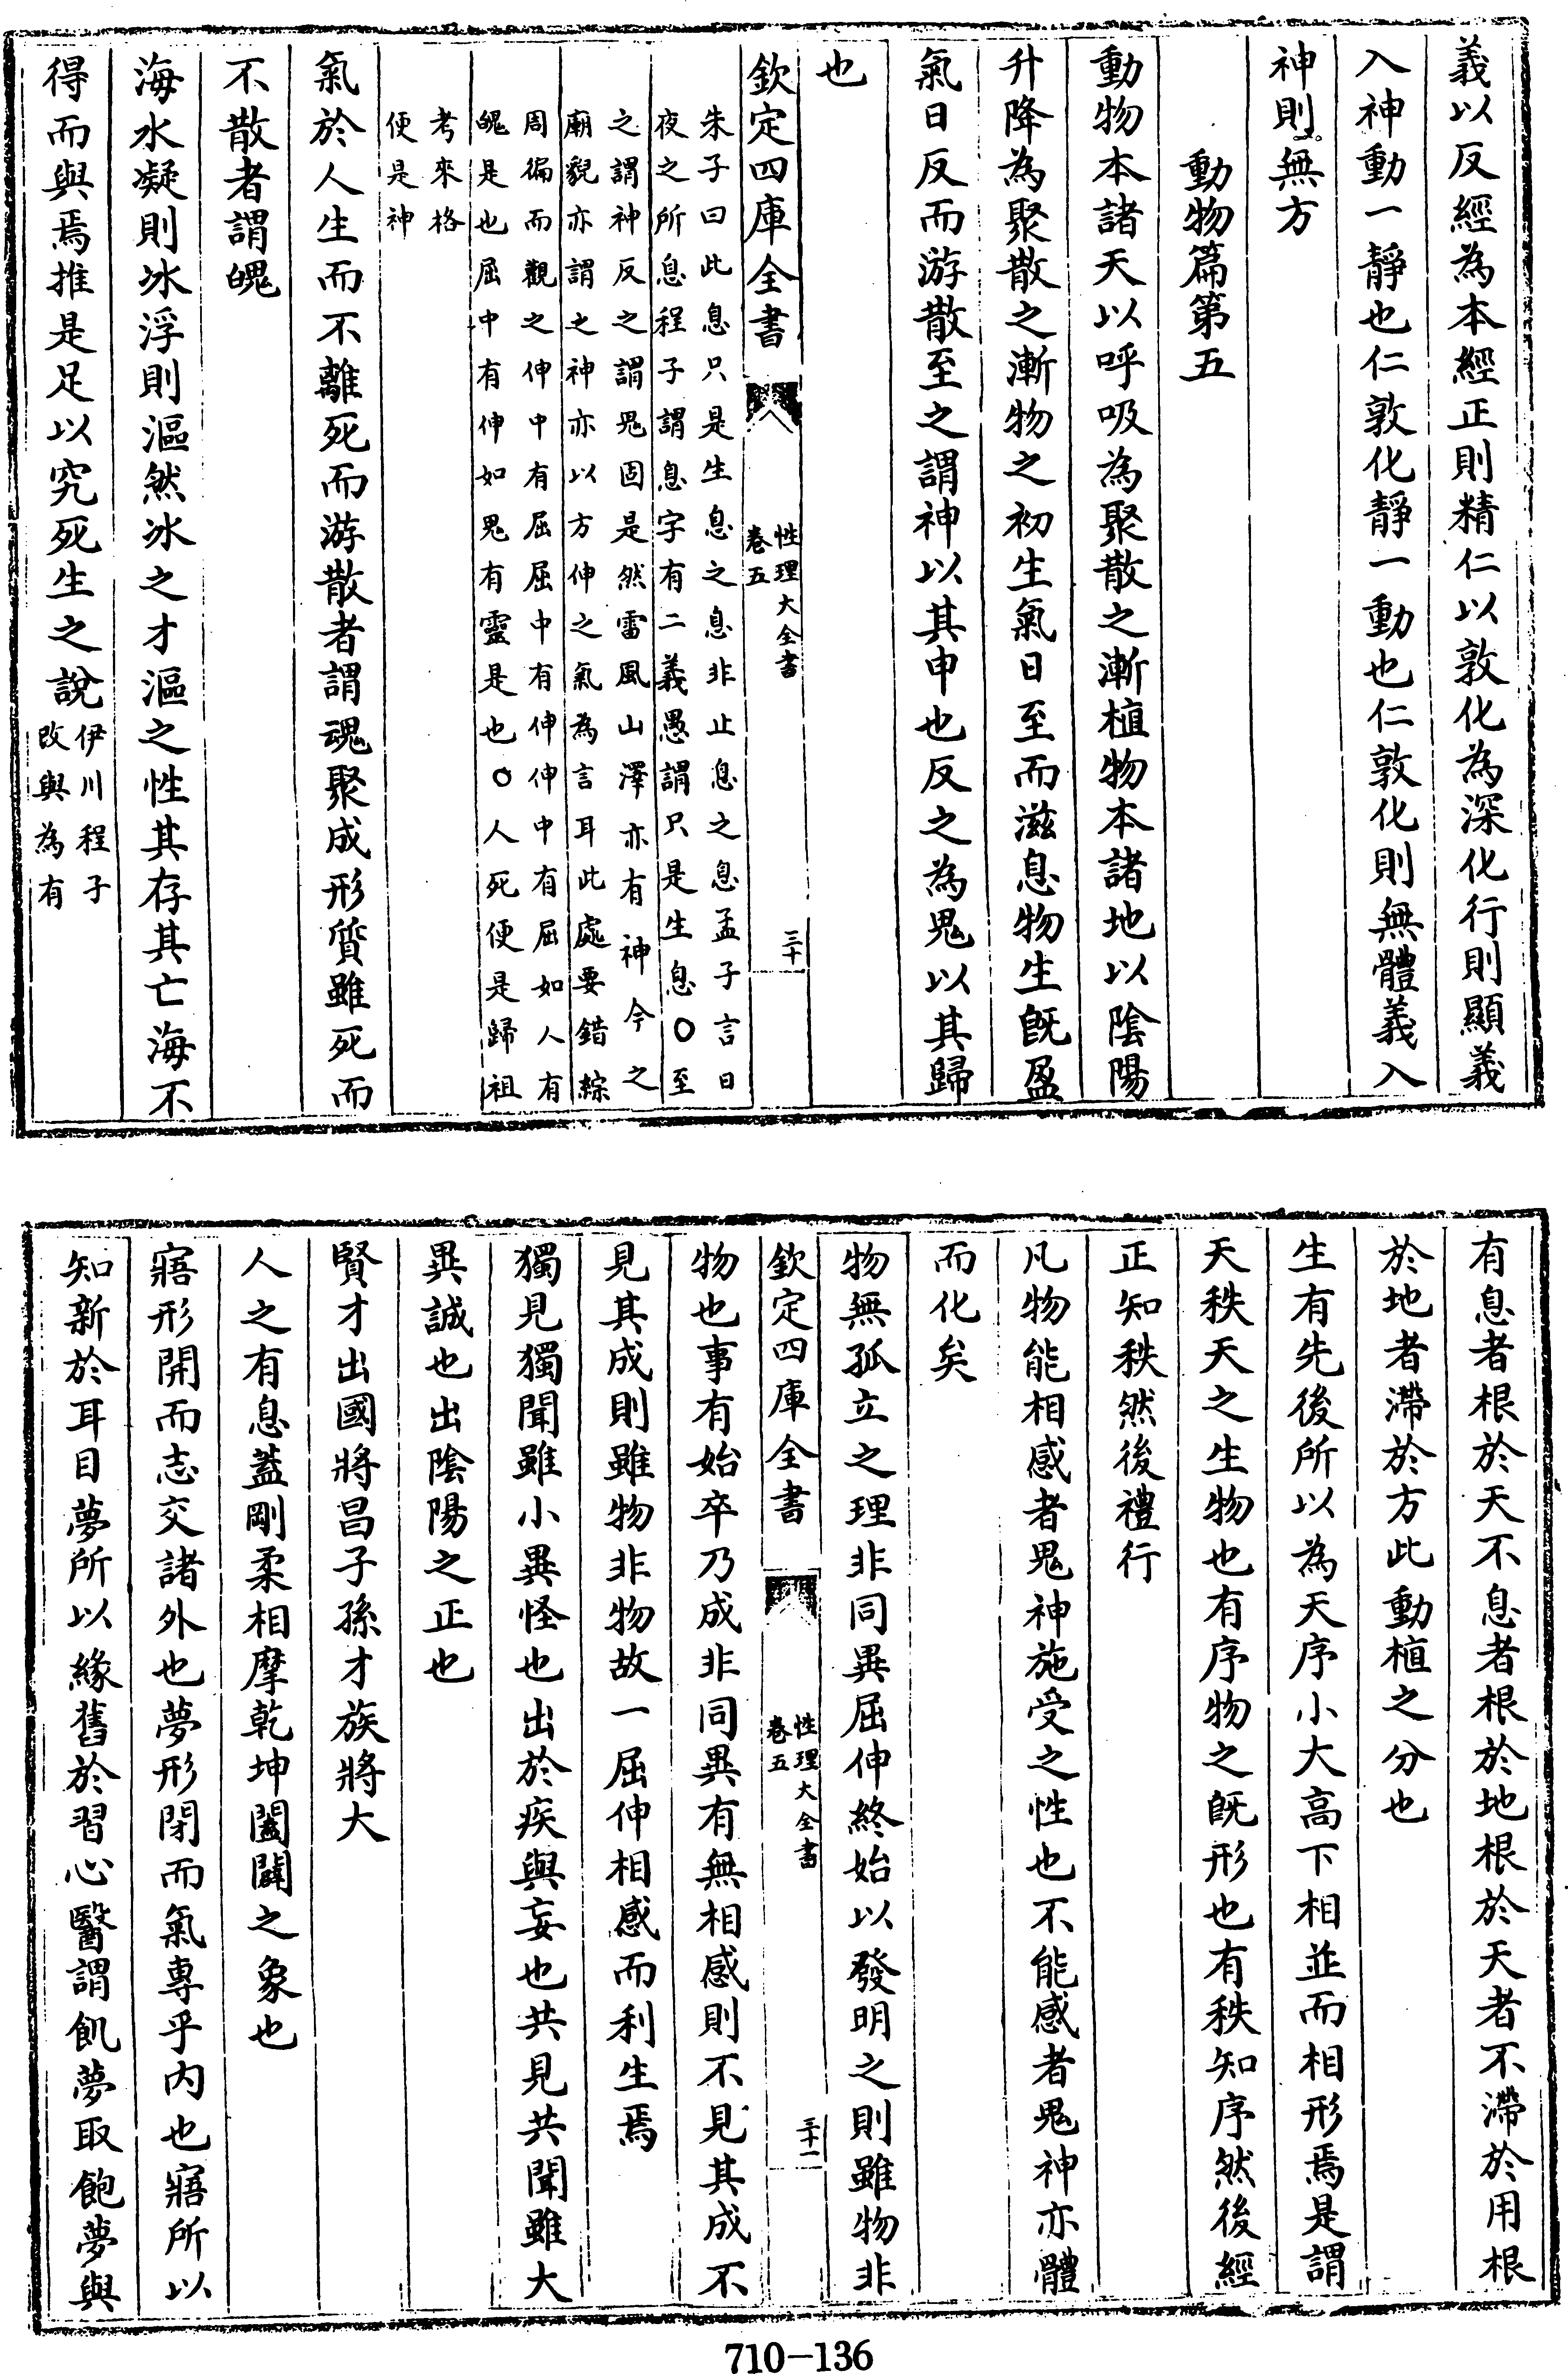 義以反經為本經正則精仁以敦化為深化行則顯義
入神動一靜也仁敦化靜一動也仁敦化則無體義入
神則無方
動物篇第五
動物本諸天以呼吸為聚散之漸植物本諸地以陰陽
升降為聚散之漸物之初生氣日至而滋息物生旣盈
氣日反而游散至之謂神以其申也反之為鬼以其歸
也
欽定四庫全書
性理大全書
卷五
三十
朱子曰此息只是生息之息非止息之息孟子言日
夜之所息程子謂息字有二義愚謂只是生息○至
之謂神反之謂鬼固是然雷風山澤亦有神今之
廟貌亦謂之神亦以方伸之氣為言耳此處要錯綜
周徧而觀之伸中有屈屈中有伸伸中有屈如人有
魄是也屈中有伸如鬼有靈是也○人死便是歸祖
考來格
便是神
氣於人生而不離死而游散者謂魂聚成形質雖死而
不散者謂魄
海水凝則冰浮則漚然冰之才漚之性其存其亡海不
得而與焉推是足以究死生之說
伊川程子
改與為有
有息者根於天不息者根於地根於天者不滯於用根
於地者滯於方此動植之分也
生有先後所以為天序小大高下相並而相形焉是謂
天秩天之生物也有序物之旣形也有秩知序然後經
正知秩然後禮行
凡物能相感者鬼神施受之性也不能感者鬼神亦體
而化矣
物無孤立之理非同異屈伸終始以發明之則雖物非
欽定四庫全書
性理大全書
卷五
三十一
物也事有始卒乃成非同異有無相感則不見其成不
見其成則雖物非物故一屈伸相感而利生焉
獨見獨聞雖小異怪也出於疾與妄也共見共聞雖大
異誠也出陰陽之正也
賢才出國將昌子孫才族將大
人之有息蓋剛柔相摩乾坤闔闢之象也
寤形開而志交諸外也夢形閉而氣專乎內也寤所以
知新於耳目夢所以緣舊於習心醫謂飢夢取飽夢與
710-136